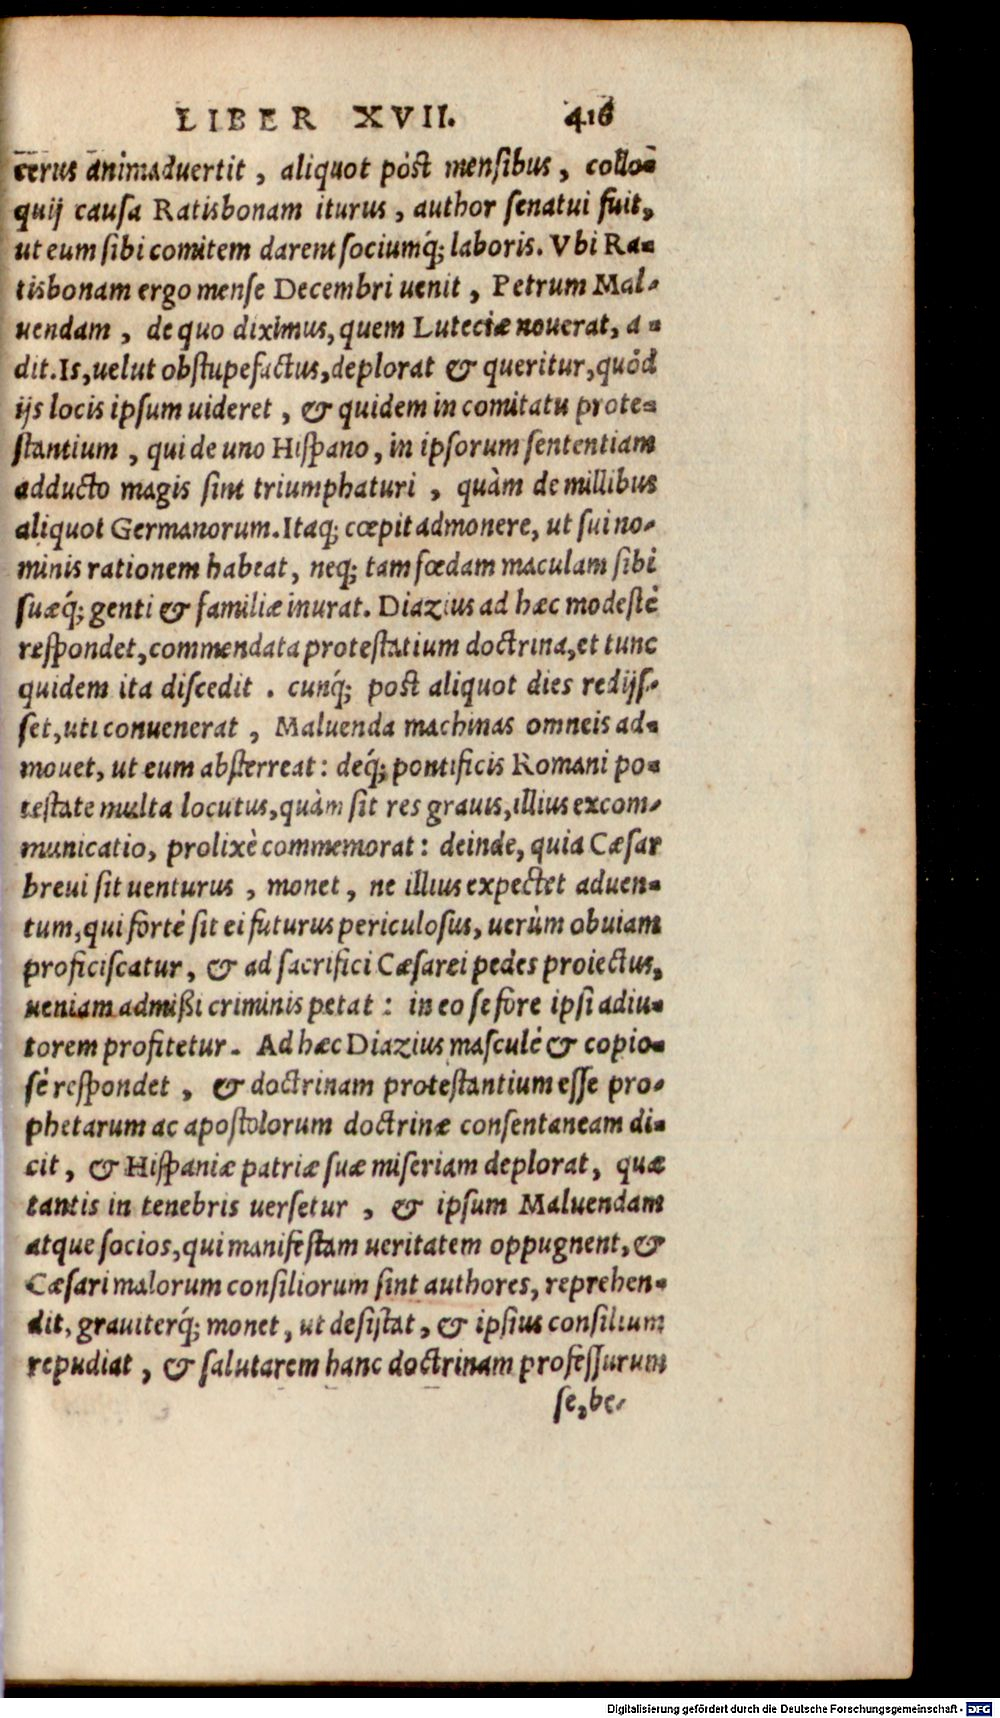 LIBER XVII. 416
cerus animaduertit, aliquot pòst mensibus, collo-
quij causa Ratisbonam iturus, author senatui fuit,
ut eum sibi comitem darent sociumq́; laboris. Vbi Ra-
tisbonam ergo mense Decembri uenit, Petrum Mal-
uendam, de quo diximus, quem Luteciæ nouerat, a-
dit. Is, uelut obstupefactus, deplorat & queritur, quòd
ijs locis ipsum uideret, & quidem in comitatu prote-
stantium, qui de uno Hispano, in ipsorum sententiam
adducto magis sint triumphaturi, quàm de millibus
aliquot Germanorum. Itaq; cœpit admonere, ut sui no-
minis rationem habeat, neq; tam fœdam maculam sibi
suæq́; genti & familiæ inurat. Diazius ad hæc modestè
respondet, commendata protestatium doctrina, et tunc
quidem ita discedit. cunq́; post aliquot dies redijs-
set, uti conuenerat, Maluenda machinas omneis ad-
mouet, ut eum absterreat: deq́; pontificis Romani po-
testate multa locutus, quàm sit res grauis, illius excom-
municatio, prolixè commemorat: deinde, quia Cæsar
breui sit uenturus, monet, ne illius expectet aduen-
tum, qui fortè sit ei futurus periculosus, uerùm obuiam
proficiscatur, & ad sacrifici Cæsarei pedes proiectus,
ueniam admißi criminis petat: in eo se fore ipsi adiu-
torem profitetur. Ad hæc Diazius masculè & copio-
sè respondet, & doctrinam protestantium esse pro-
phetarum ac apostolorum doctrinæ consentaneam di-
cit, & Hispaniæ patriæ suæ miseriam deplorat, quæ
tantis in tenebris uersetur, & ipsum Maluendam
atque socios, qui manifestam ueritatem oppugnent, &
Cæsari malorum consiliorum sint authores, reprehen-
dit, grauiterq́; monet, ut desistat, & ipsius consilium
repudiat, & salutarem hanc doctrinam professurum
se, be-
Digitalisierung gefördert durch die Deutsche Forschungsgemeinschaft - DFG